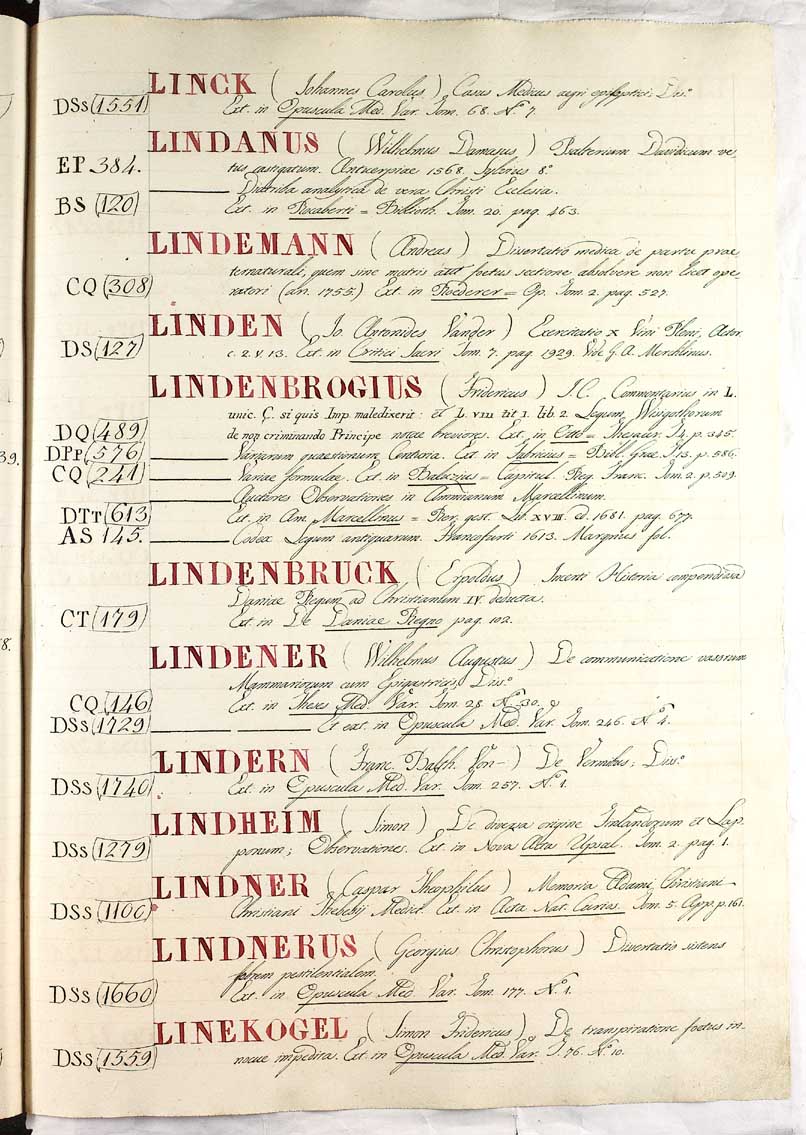 LINCK (Johannes Carolus) Casus Medicus aegri epileptici. Diss.º
DSs (1551) Ext. in Opuscula Med. Var. Tom. 68. N.º 7.
LINDANUS (Wilhelmus Damasus) Psalterium Davidicum ve-
EP. 384. tus castigatum. Antverpiae 1568. Sylvius 8.º
——— Diatriba analytica de vera Christi Ecclesia.
BS (120) Ext. in Rocaberti = Biblioth. Tom. 20. pag. 463.
LINDEMANN (Andreas) Disertatio medica de partu prae-
ternaturali, quem sine matris aut foetus sectione absolvere non licet ope-
CQ (308) ratori (an. 1755.) Ext. in Roederer = Op. Tom. 2. pag. 527.
LINDEN (Jo. Antonides Vander) Exercitatio x Vini Pleni, Actor.
DS (127) c. 2. v. 13. Ext. in Critici Sacri Tom. 7. pag. 1929. Vid. G. A. Merchlinus.
LINDENBROGIUS (Fridericus) J.C. Commentarius in L.
unic. C. si quis Imp. maledixerit: et L. VIII tit 1. lib 2. Legum Wisigothorum
DQ (489) de non criminando Principe notae breviores. Ext. in Otto = Thesaur. T. 4. p. 345.
DPp (576) ——— Variarum quaestionum Centuria. Ext. in Fabricius = Bibl. Grae. T. 13. p. 586.
CQ (241) ——— Variae formulae. Ext. in Baluzius = Capitul. Reg. Franc. Tom. 2. p. 509.
——— Auctores Observationes in Ammianum Marcellinum.
DTt (613) Ext. in Am. Marcellinus = Rer. gest. Lib. XVIII. ed. 1681. pag. 677.
AS 145. ——— Codex Legum antiquarum. Francofurti 1613. Marnius fol.
LINDENBRUCK (Erpoldus) Incerti Historia compendiosa
Daniae Regum ad Christianum IV. deducta.
CT (179) Ext. in De Daniae Regno pag. 102.
LINDENER (Wilhelmus Augustus) De communicatione vasorum
Mammariorum cum Epigastricis, Diss.º
CQ (146) Ext. in Theses Med. Var. Tom. 28. N.º 330.
DSs (1729) ——— ——— Et ext. in Opuscula Med. Var. Tom. 246. N.º 4.
LINDERN (Franc. Balth. Von–) De Vermibus; Diss.º
DSs (1740) Ext. in Opuscula Med. Var. Tom. 257. N.º 1.
LINDHEIM (Simon) De diversa origine Finlandorum et Lap-
DSs (1279) ponum; Observationes. Ext. in Nova Acta Upsal. Tom. 2. pag. 1.
LINDNER (Caspar Theophilus) Memoria Adami Christiani
DSs (1100) Christiani Thebesij Medici. Ext. in Acta Nat. Curios. Tom. 5. App. p. 161.
LINDNERUS (Georgius Christophorus) Disertatio sistens
febrem pestilentialem.
DSs (1660) Ext. in Opuscula Med. Var. Tom. 177. N.º 1.
LINEKOGEL (Simon Fridericus) De transpiratione foetus in-
DSs (1559) noxie impedita. Ext. in Opuscula Med. Var. T. 76. N.º 10.